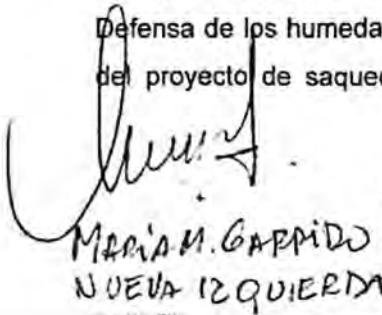 Defensa de los humeda
del proyecto de saque
MARÍA M. GARRIDO
NUEVA IZQUIERDA